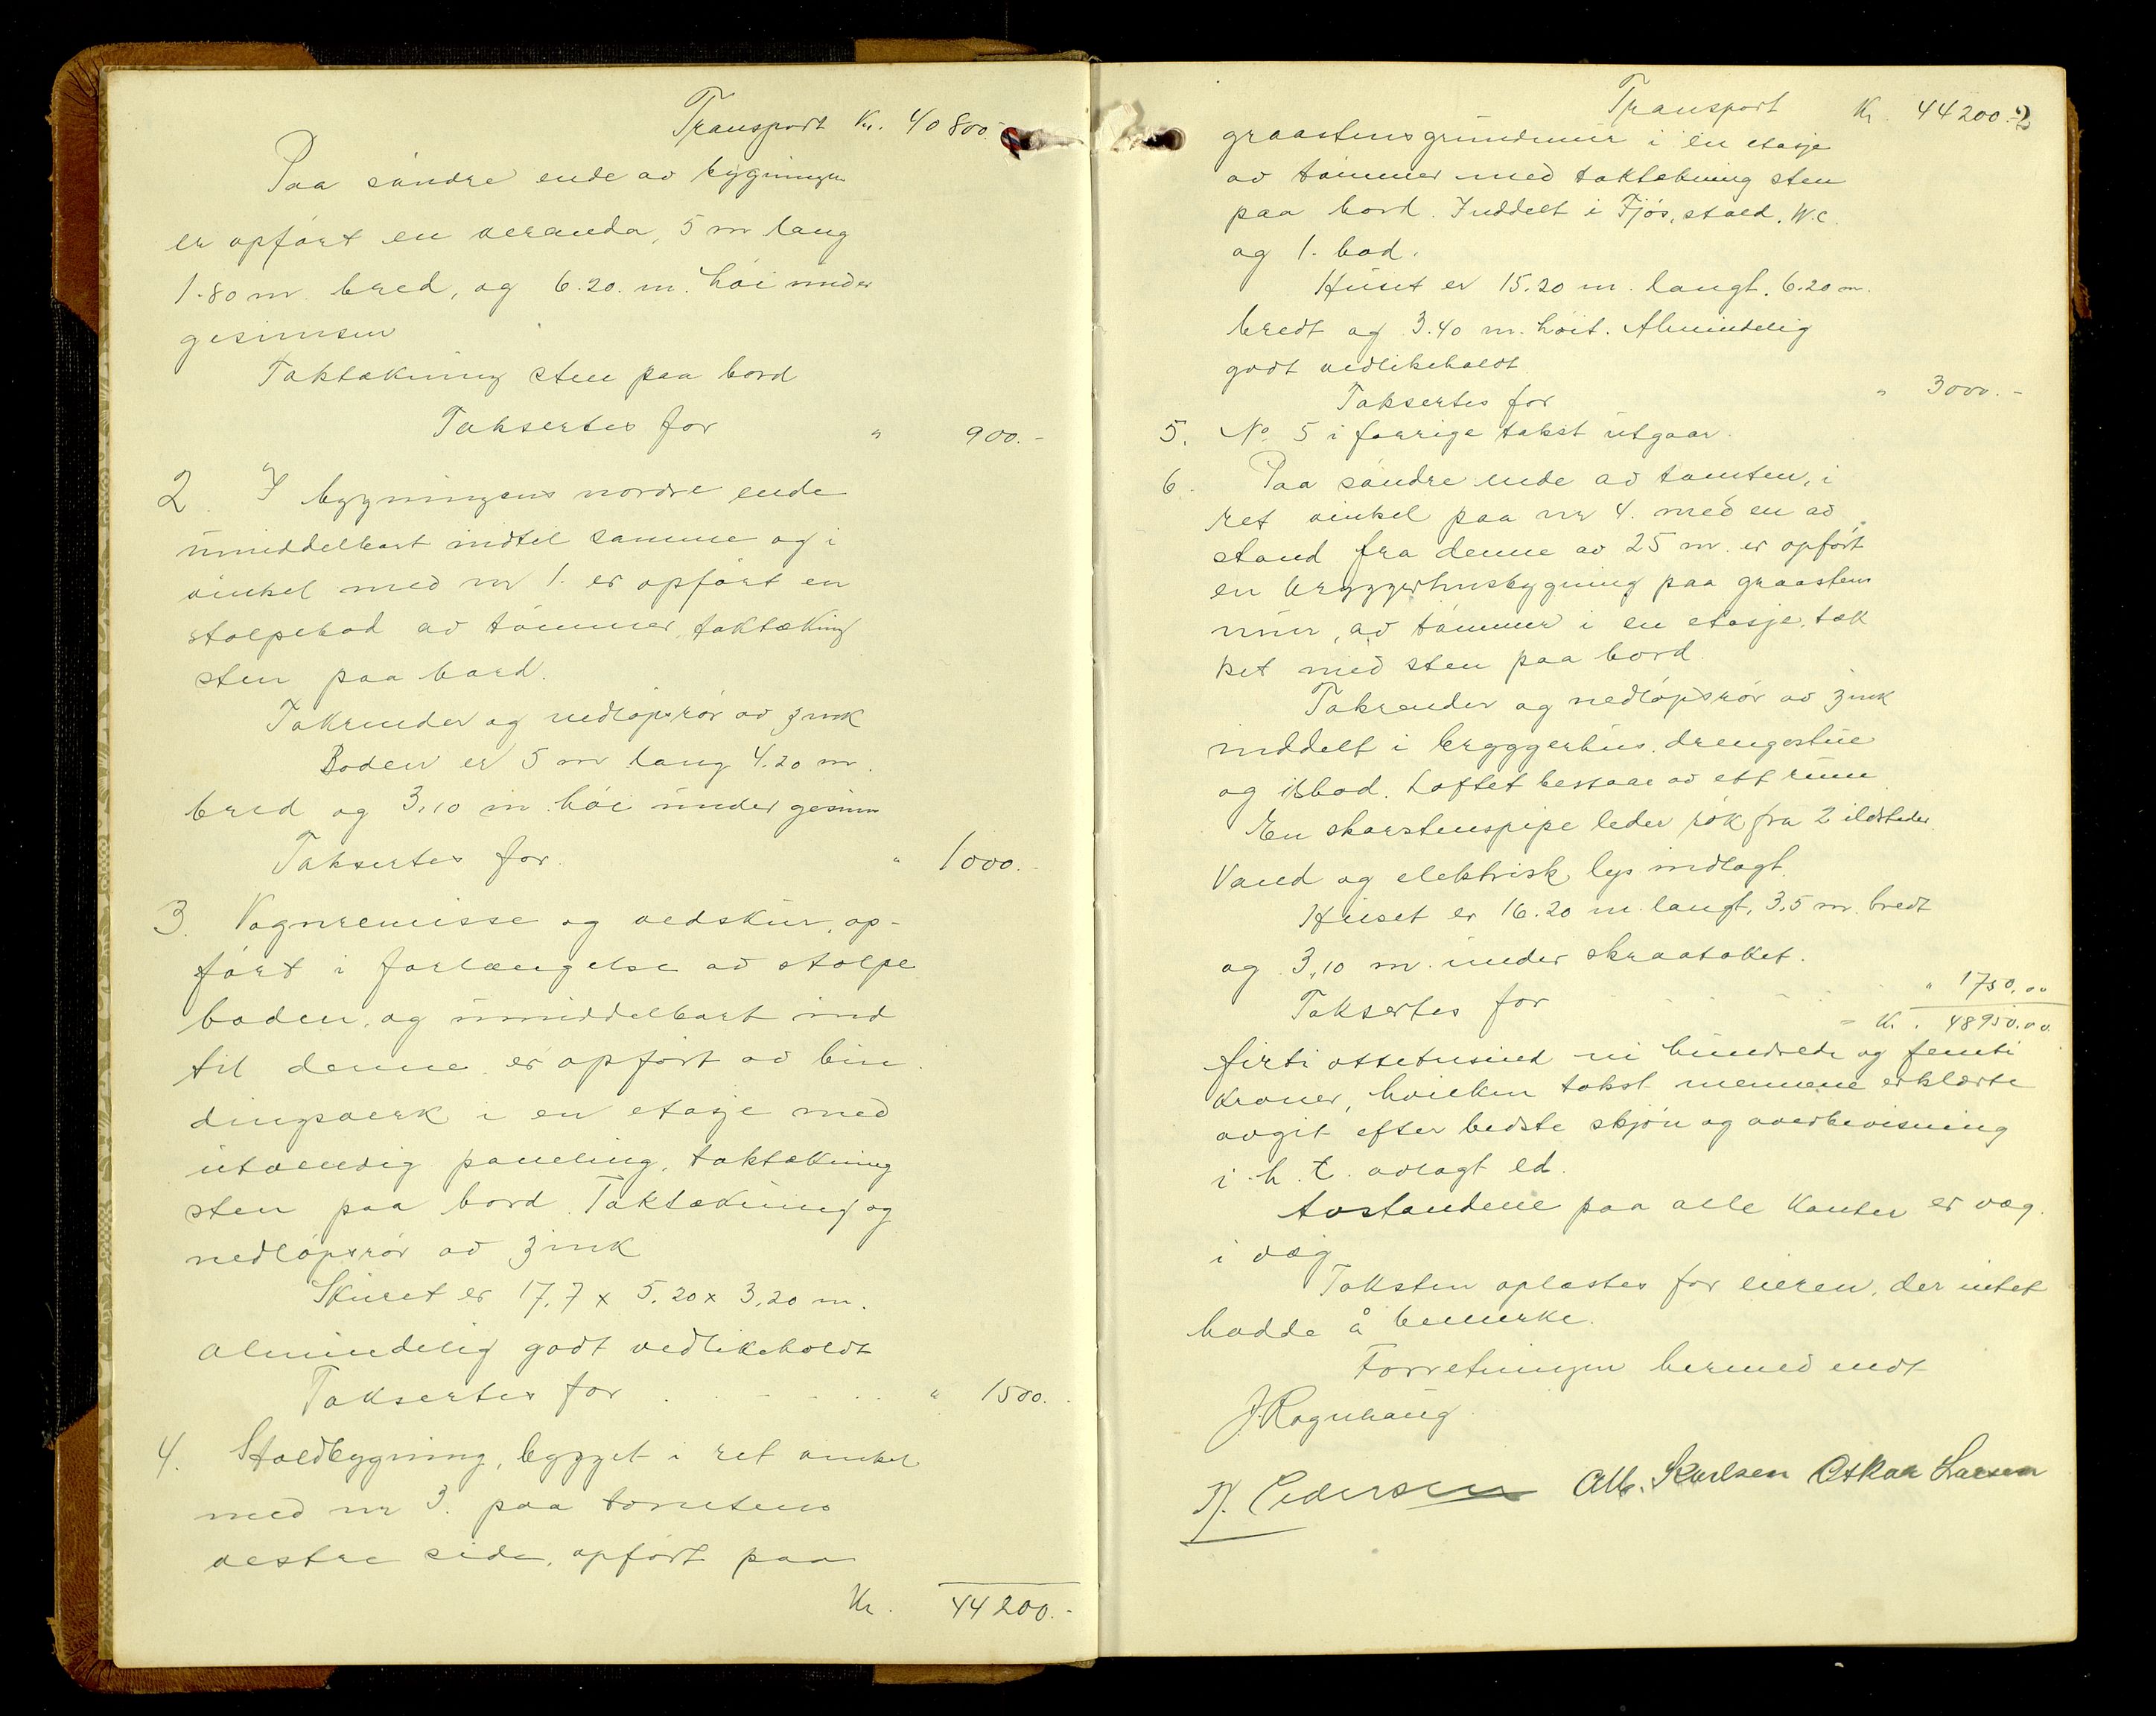 Transport Kr. 40800.-
Paa søndre ende av bygningen
er opført en veranda, 5 m lang
1.80 m. bred, og 6.20. m. høi under
gesimsen
Taktækning sten paa bord
Taksertes for " 900.-
2. I bygningens nordre ende
umiddelbart indtil samme og i
vinkel med nr 1. er opført en
stolpebod av tømmer, taktækning
sten paa bord.
Takrender og nedløpsrør av zink
Boden er 5 m lang 4.20 m.
bred og 3,10 m. høi under gesims
Taksertes for " 1000.-
3. Vognremisse og vedskur, op-
ført i forlængelse av stolpe
boden, og umiddelbart ind
til denne, er opført av bin
dingsverk i en etasje med
utvendig paneling, taktækning
sten paa bord. Taktækning og
nedløpsrør av zink
Skuret er 17,7 x 5.20 x 3,20 m.
Almindelig godt vedlikeholdt
Taksertes for . . . . . . " 1500.-
4. Staldbygning, bygget i ret vinkel
med nr 3. paa tomtens
vestre side, opført paa
Kr. 44200.-
Transport Kr. 44200.- 2
graastensgrundmur i en etasje
av tømmer med taktækning sten
paa bord. Inddelt i Fjøs, stald, W.c.
og 1. bod.
Huset er 15.20 m. langt, 6.20 m.
bredt og 3.40 m. høit. Almindelig
godt vedlikeholdt
Taksertes for " 3000.-
5. No 5 i forrige takst utgaar.
6. Paa søndre ende av tomten, i
ret vinkel paa nr 4. med en av
stand fra denne av 25 m. er opført
en bryggerhusbygning paa graastens
mur, av tømmer i en etasje, tæk
ket med sten paa bord.
Takrender og nedløpsrør av zink
inddelt i bryggerhus, drengestue
og isbod. Loftet bestaar av ett rum
En skorstenspipe leder røk fra 2 ildsteder
Vand og elektrisk lys indlagt.
Huset er 16.20 m. langt, 3,5 m. bredt
og 3,10 m. under skraataket.
Taksertes for . . . . . . " 1750.00
= Kr. 48950.00
førti ottetusind ni hundrede og femti
kroner, hvilken takst mennene erklærte
avgit efter bedste skjøn og overbevisning
i h. t. avlagt ed.
Avstandene paa alle kanter er væg
i væg
Taksten oplæstes for eieren, der intet
hadde å bemerke.
Forretningen hermed endt
J. Rognhaug
N. Pedersen Alb. Karlsen Oskar Larsen